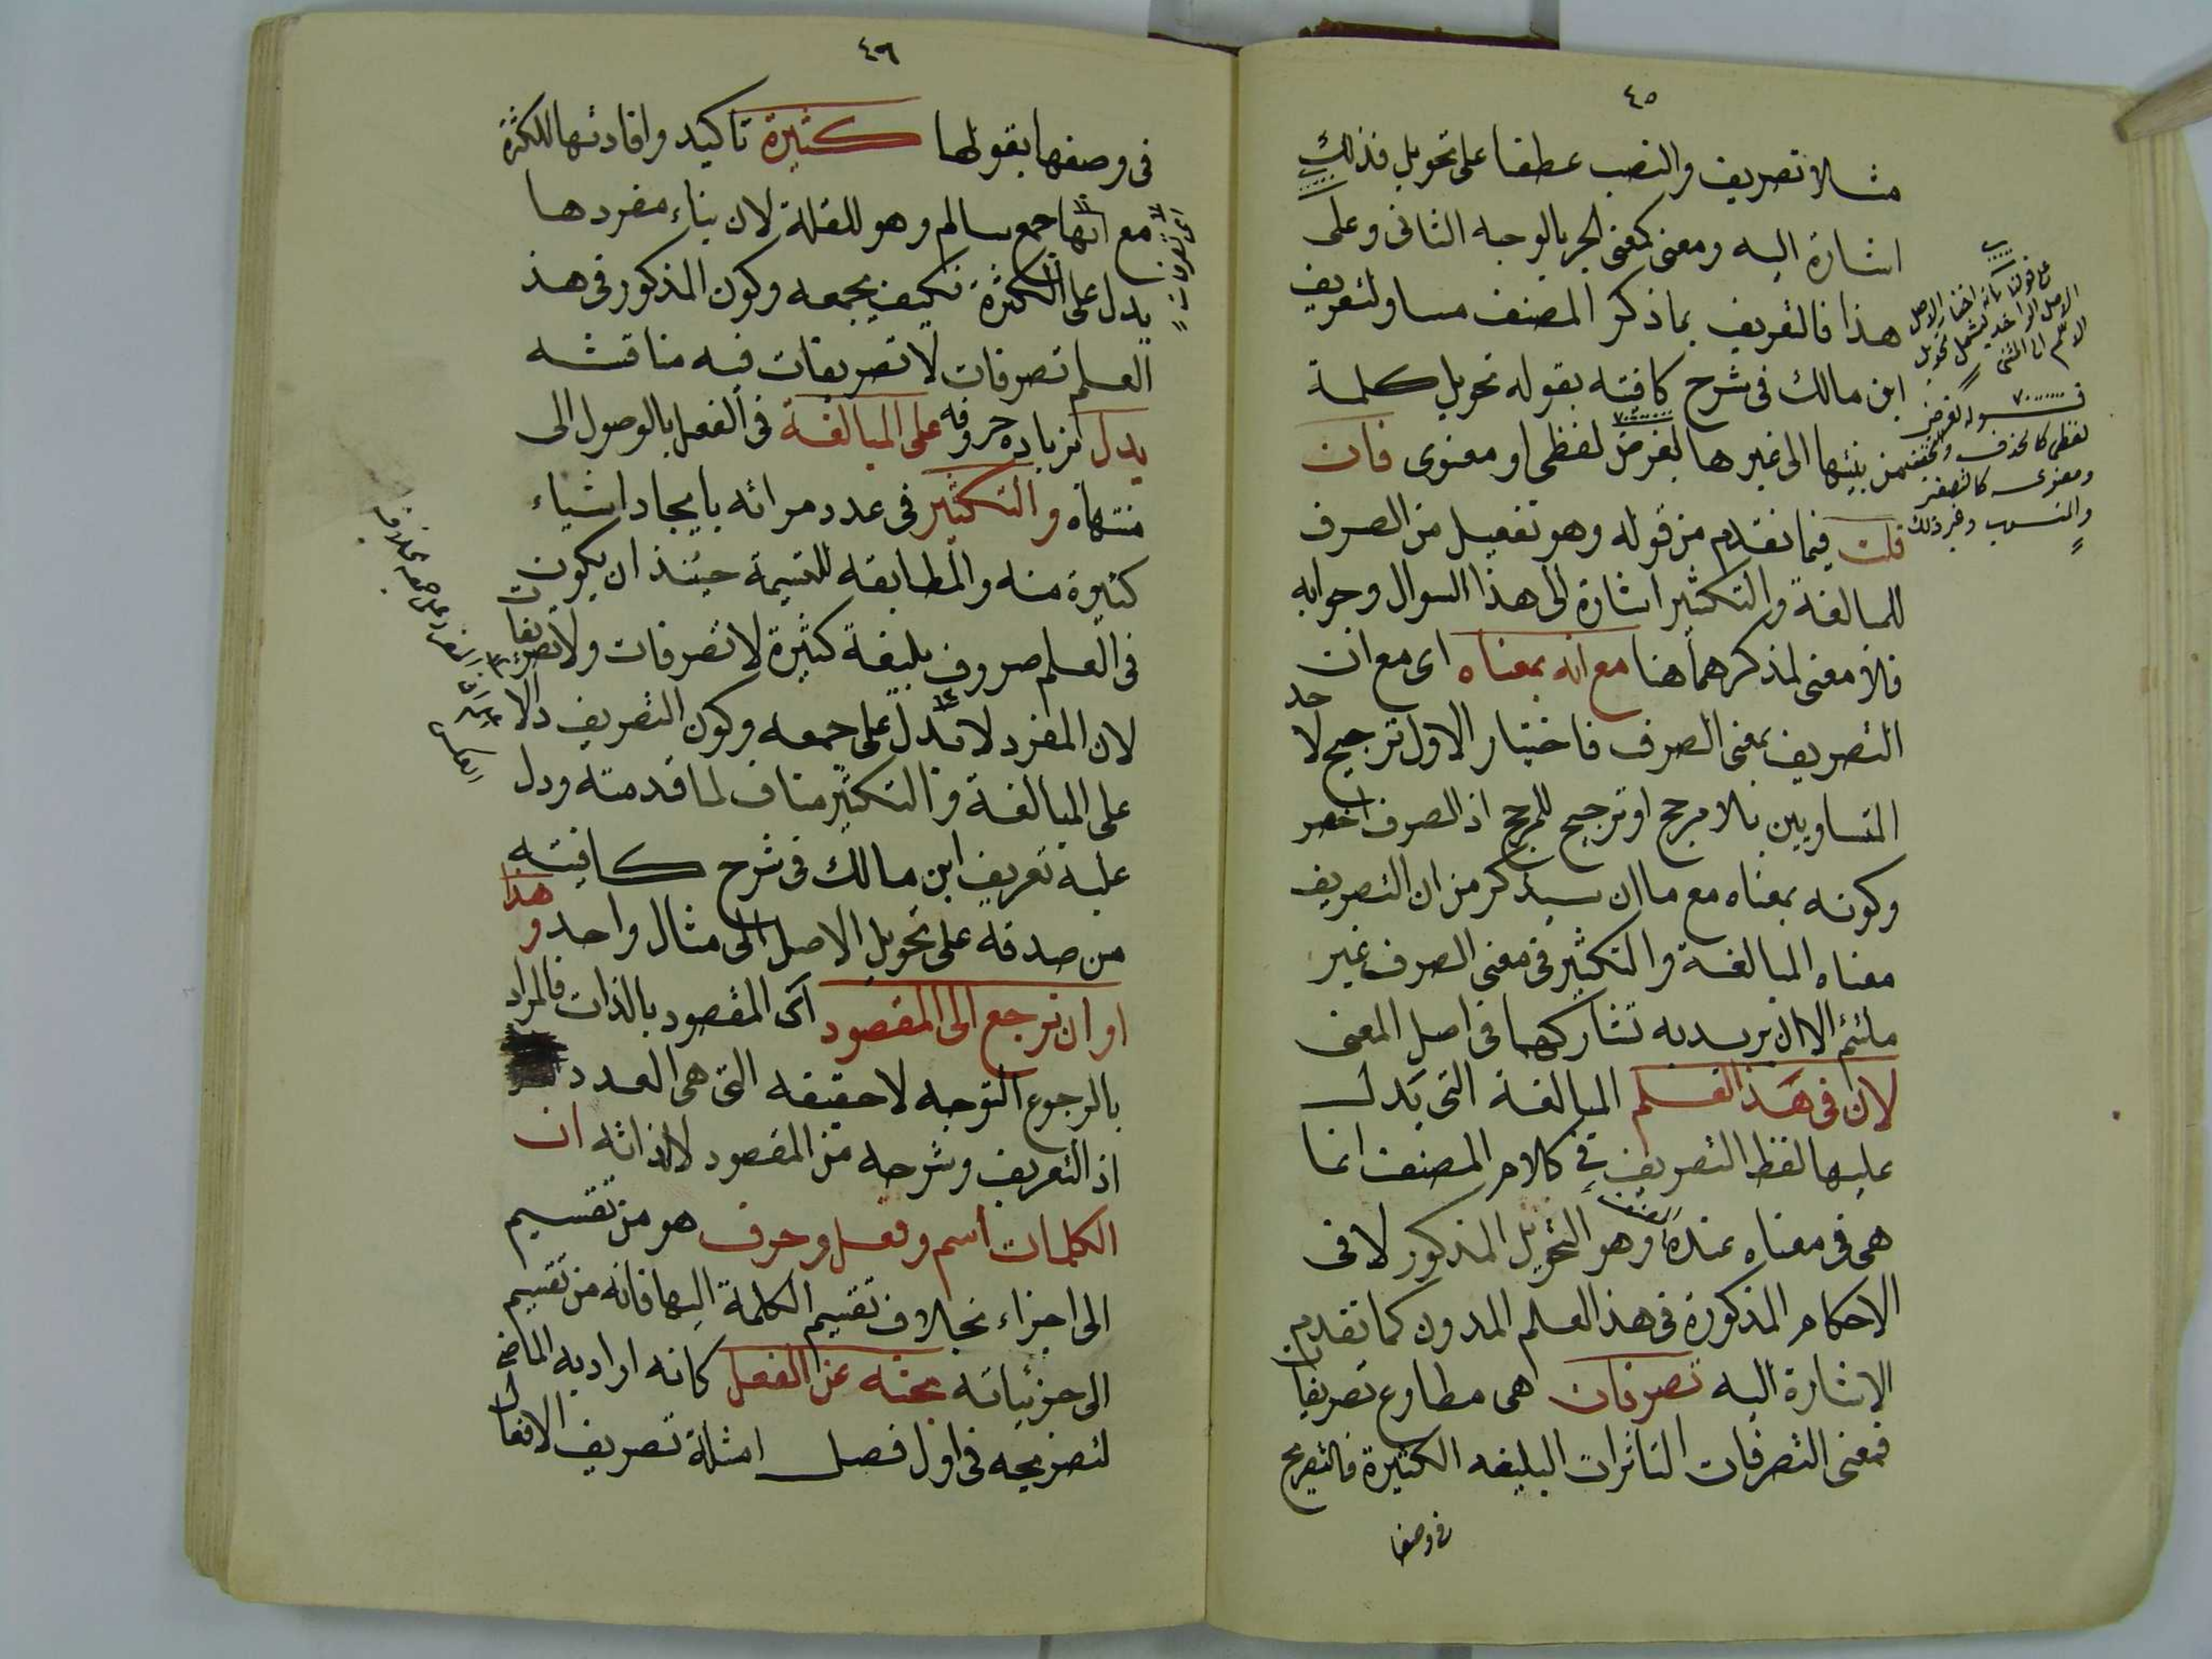 ٤٥
مثالا تصريف والنصب عطفا على تحويل فذلك
اشارة اليه ومعنى كمعنى الجر بالوجه الثانى وعلى
هذا فالتعريف بما ذكر المصنف مساو لتعريف
ابن مالك فى شرح كافيته بقوله تحويل كلمة
من بنيتها الى غيرها لغرض لفظى او معنوى فان
قلت فيما تقدم من قوله وهو تفعيل من الصرف
للمبالغة والتكثير اشارة الى هذا السوال وجوابه
فلا معنى لذكرهما هنا مع انه بمعناه اى مع ان
التصريف بمعنى الصرف فاختيار الاول ترجيح لاحد
المتساويين بلا مرجح او ترجيح للمرجح اذ الصرف اخصر
وكونه بمعناه مع ما ان سيذكر من ان التصريف
معناه المبالغة والتكثير فى معنى الصرف غير
ملتئم الا ان يريد به تشاركهما فى اصل المعنى
لان فى هذا العلم المبالغة التى يدل
عليها لفظ التصريف فى كلام المصنف انما
هى فى معناه عنده وهو التحويل المذكور لا فى
الاحكام المذكورة فى هذا العلم المدون كما تقدم
الاشارة اليه تصرفات هى مطاوع تصريفات
فمعنى التصرفات التاثرات البليغه الكثيرة فالتصريح
فى وصفها
قوله لغرض
لفظى كالحذف
ومعنوى كالتصغير
والنسب وغير ذلك
٤٦
فى وصفها بقولها كثيرة تاكيد وافادتها للكثرة
مع انها جمع سالم وهو للقلة لان بناء مفردها
يدل على الكثرة فكيف بجمعه وكون المذكور فى هذ
العلم تصرفات لا تصريفات فيه مناقشه
يدل بزيادة حروفه على المبالغة فى الفعل بالوصول الى
منتهاه والتكثير فى عدد مراته بايجاد اشياء
كثيرة منه والمطابقه للتسمية حينئذ ان يكون
فى العلم صروف بليغة كثيرة لا تصرفات ولا تصريفات
لان المفرد لا يدل على جمعه وكون التصريف دالا
على المبالغة والتكثير مناف لما قدمته ودل
عليه تعريف ابن مالك فى شرح كافيته
من صدقه على تحويل الاصل الى مثال واحد وهذا
او ان نرجع الى المقصود اى المقصود بالذات فالمراد
بالرجوع التوجه لا حقيقه التى هى العدد
اذ التعريف وشرحه من المقصود لا لذاته ان
الكلمات اسم وفعل وحرف هو من تقسيم
الى اجزاء بخلاف تقسيم الكلمة اليها فانه من تقسيم
الى جزئياته بحثه عن الفعل كانه اراد به الماضى
لتصريحه فى اول فصل امثلة تصريف الافعال